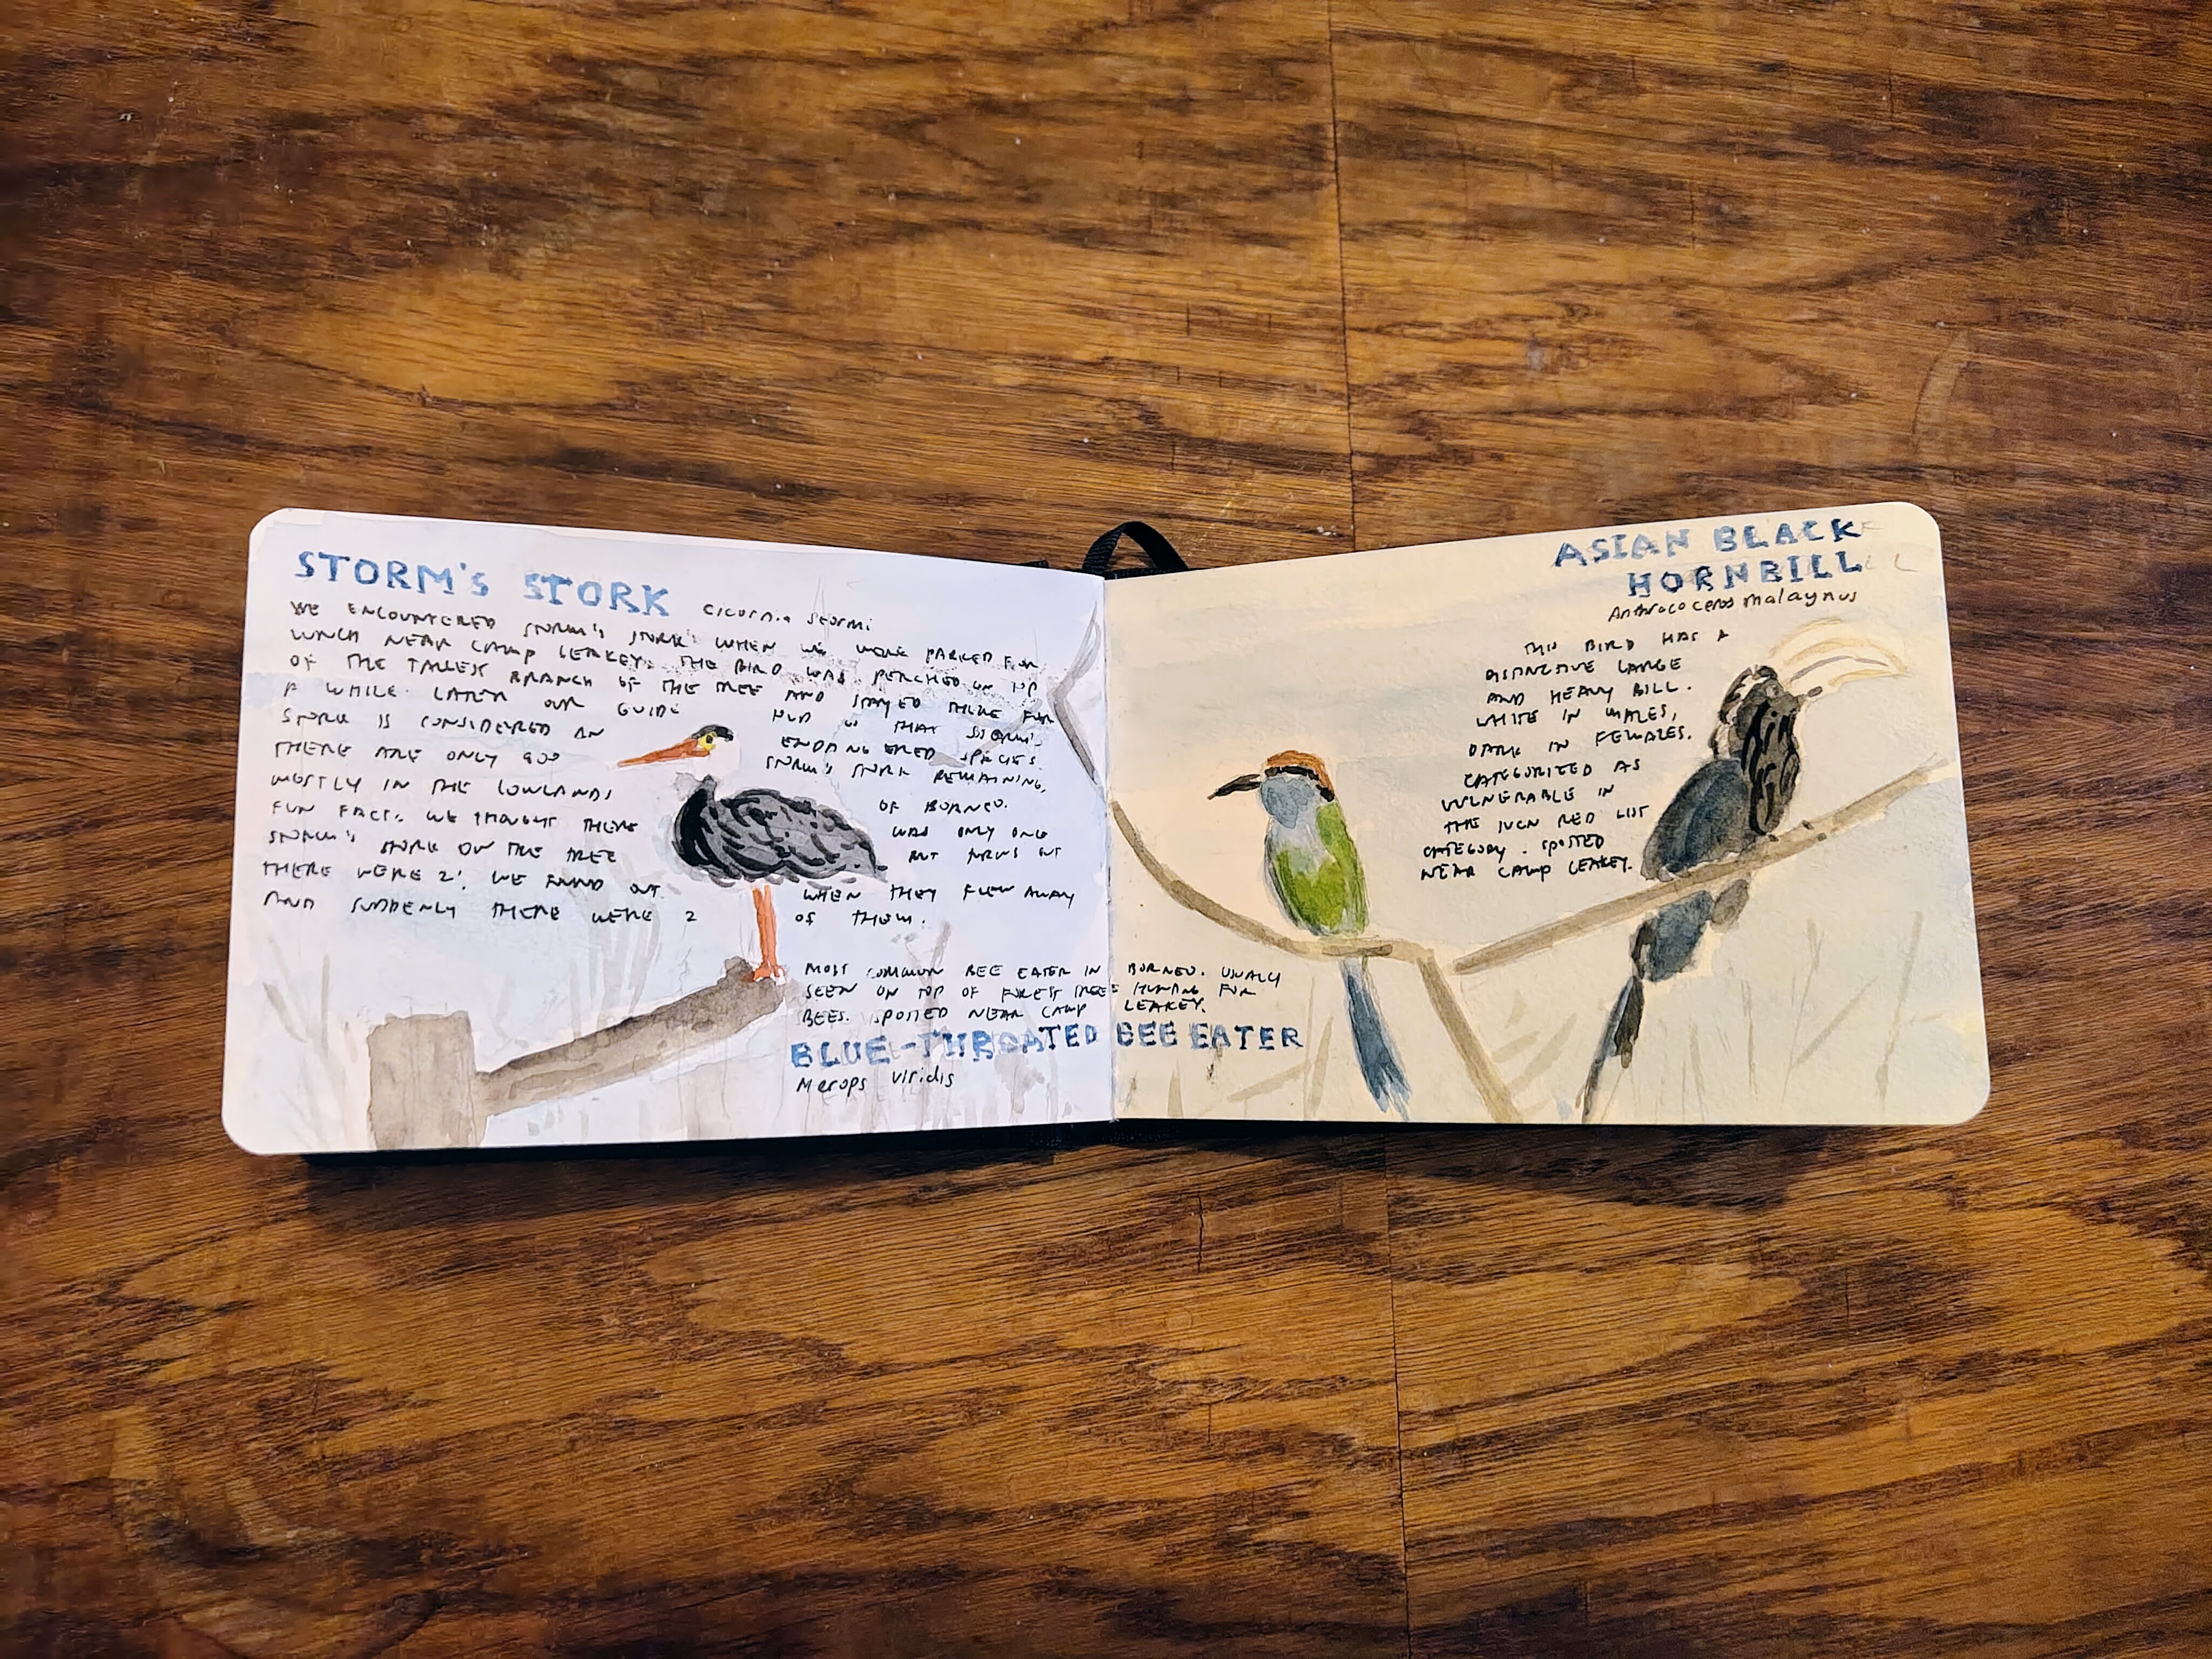 STORM'S STORK Ciconia Stormi
WE ENCOUNTERED STORM'S STORK'S WHEN WE WERE PARKED FOR
LUNCH NEAR CAMP LEAKEY. THE BIRD WAS PERCHED ON TOP
OF THE TALLEST BRANCH OF THE TREE AND STAYED THERE FOR
A WHILE. LATER OUR GUIDE TOLD US THAT STORM'S
STORK IS CONSIDERED AN ENDANGERED SPECIES.
THERE ARE ONLY 400 STORM'S STORK REMAINING,
MOSTLY IN THE LOWLANDS OF BORNEO.
FUN FACT: WE THOUGHT THERE WAS ONLY ONE
STORM'S STORK ON THE TREE BUT TURNS OUT
THERE WERE 2! WE FOUND OUT WHEN THEY FLEW AWAY
AND SUDDENLY THERE WERE 2 OF THEM.
MOST COMMON BEE EATER IN BORNEO. USUALLY
SEEN ON TOP OF FOREST TREES HUNTING FOR
BEES. SPOTTED NEAR CAMP LEAKEY.
BLUE-THROATED BEE EATER
Merops viridis
ASIAN BLACK
HORNBILL
Anthracoceros malaynus
THIS BIRD HAS A
DISTINCTIVE LARGE
AND HEAVY BILL.
WHITE IN MALES,
DARK IN FEMALES.
CATEGORIZED AS
VULNERABLE IN
THE IUCN RED LIST
CATEGORY. SPOTTED
NEAR CAMP LEAKEY.